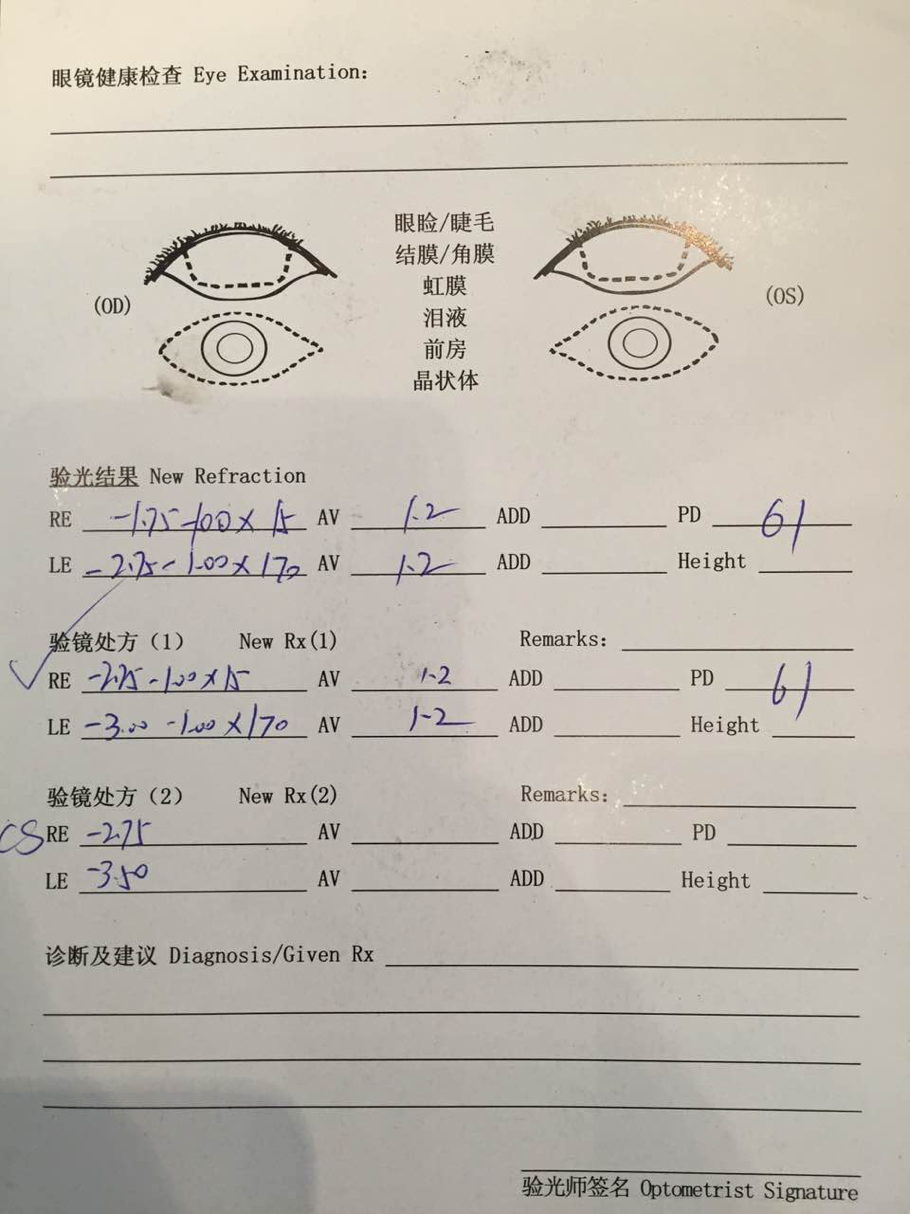 眼镜健康检查 Eye Examination:
眼睑/睫毛
结膜/角膜
虹膜
(OD) (OS)
泪液
前房
晶状体
验光结果 New Refraction
RE -1.75-1.00×15 AV 1.2 ADD PD 61
LE -2.75-1.00×170 AV 1.2 ADD Height
验镜处方(1) New Rx(1) Remarks:
✓ RE -2.25-1.00×15 AV 1.2 ADD PD 61
LE -3.00 -1.00×170 AV 1.2 ADD Height
验镜处方(2) New Rx(2) Remarks:
CS RE -2.75 AV ADD PD
LE -3.50 AV ADD Height
诊断及建议 Diagnosis/Given Rx
验光师签名 Optometrist Signature